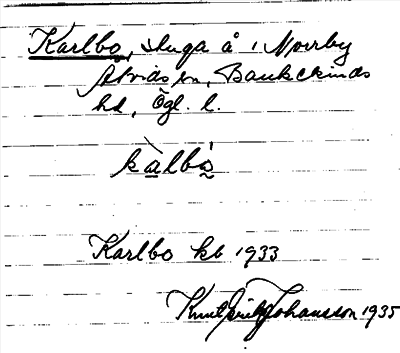 Karlbo, stuga å 1 Norrby
Åtvids sn, Bankekinds
hd, Ögl. l.
kàlbó
Karlbo kb 1933
Knut Johansson 1935